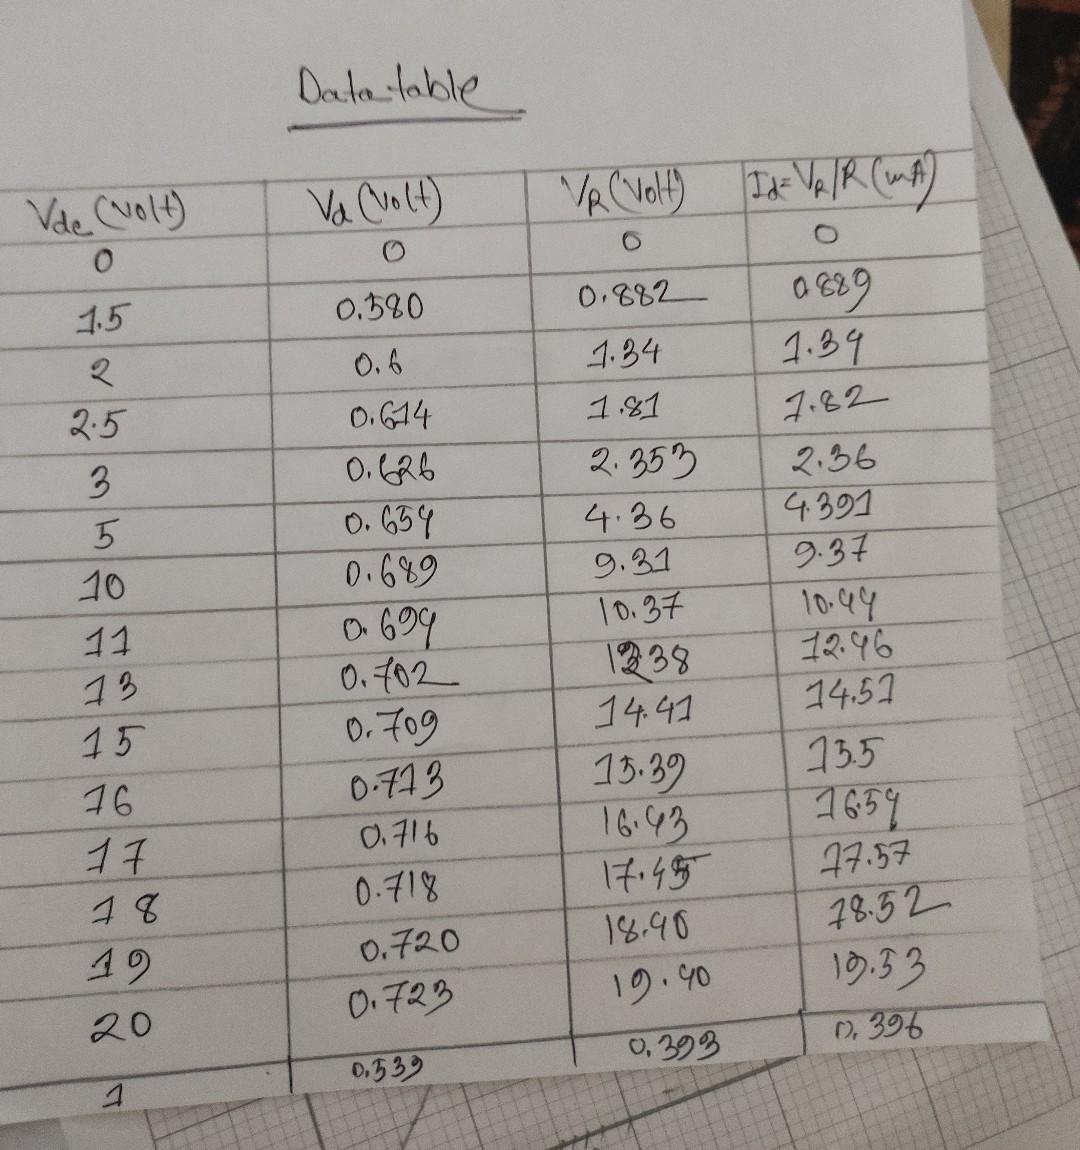 Data table
Vdc (volt) Vd (volt) VR (Volt) Id= VR/R (mA)
0 0 0 0
1.5 0.580 0.882 0.889
2 0.6 1.34 1.34
2.5 0.614 1.81 1.82
3 0.626 2.353 2.36
5 0.654 4.36 4.391
10 0.689 9.31 9.37
11 0.694 10.37 10.44
13 0.702 12.38 12.46
15 0.709 14.41 14.51
16 0.713 15.39 15.5
17 0.716 16.43 16.54
18 0.718 17.45 17.57
19 0.720 18.40 18.52
20 0.723 19.40 19.53
1 0.539 0.393 0.396